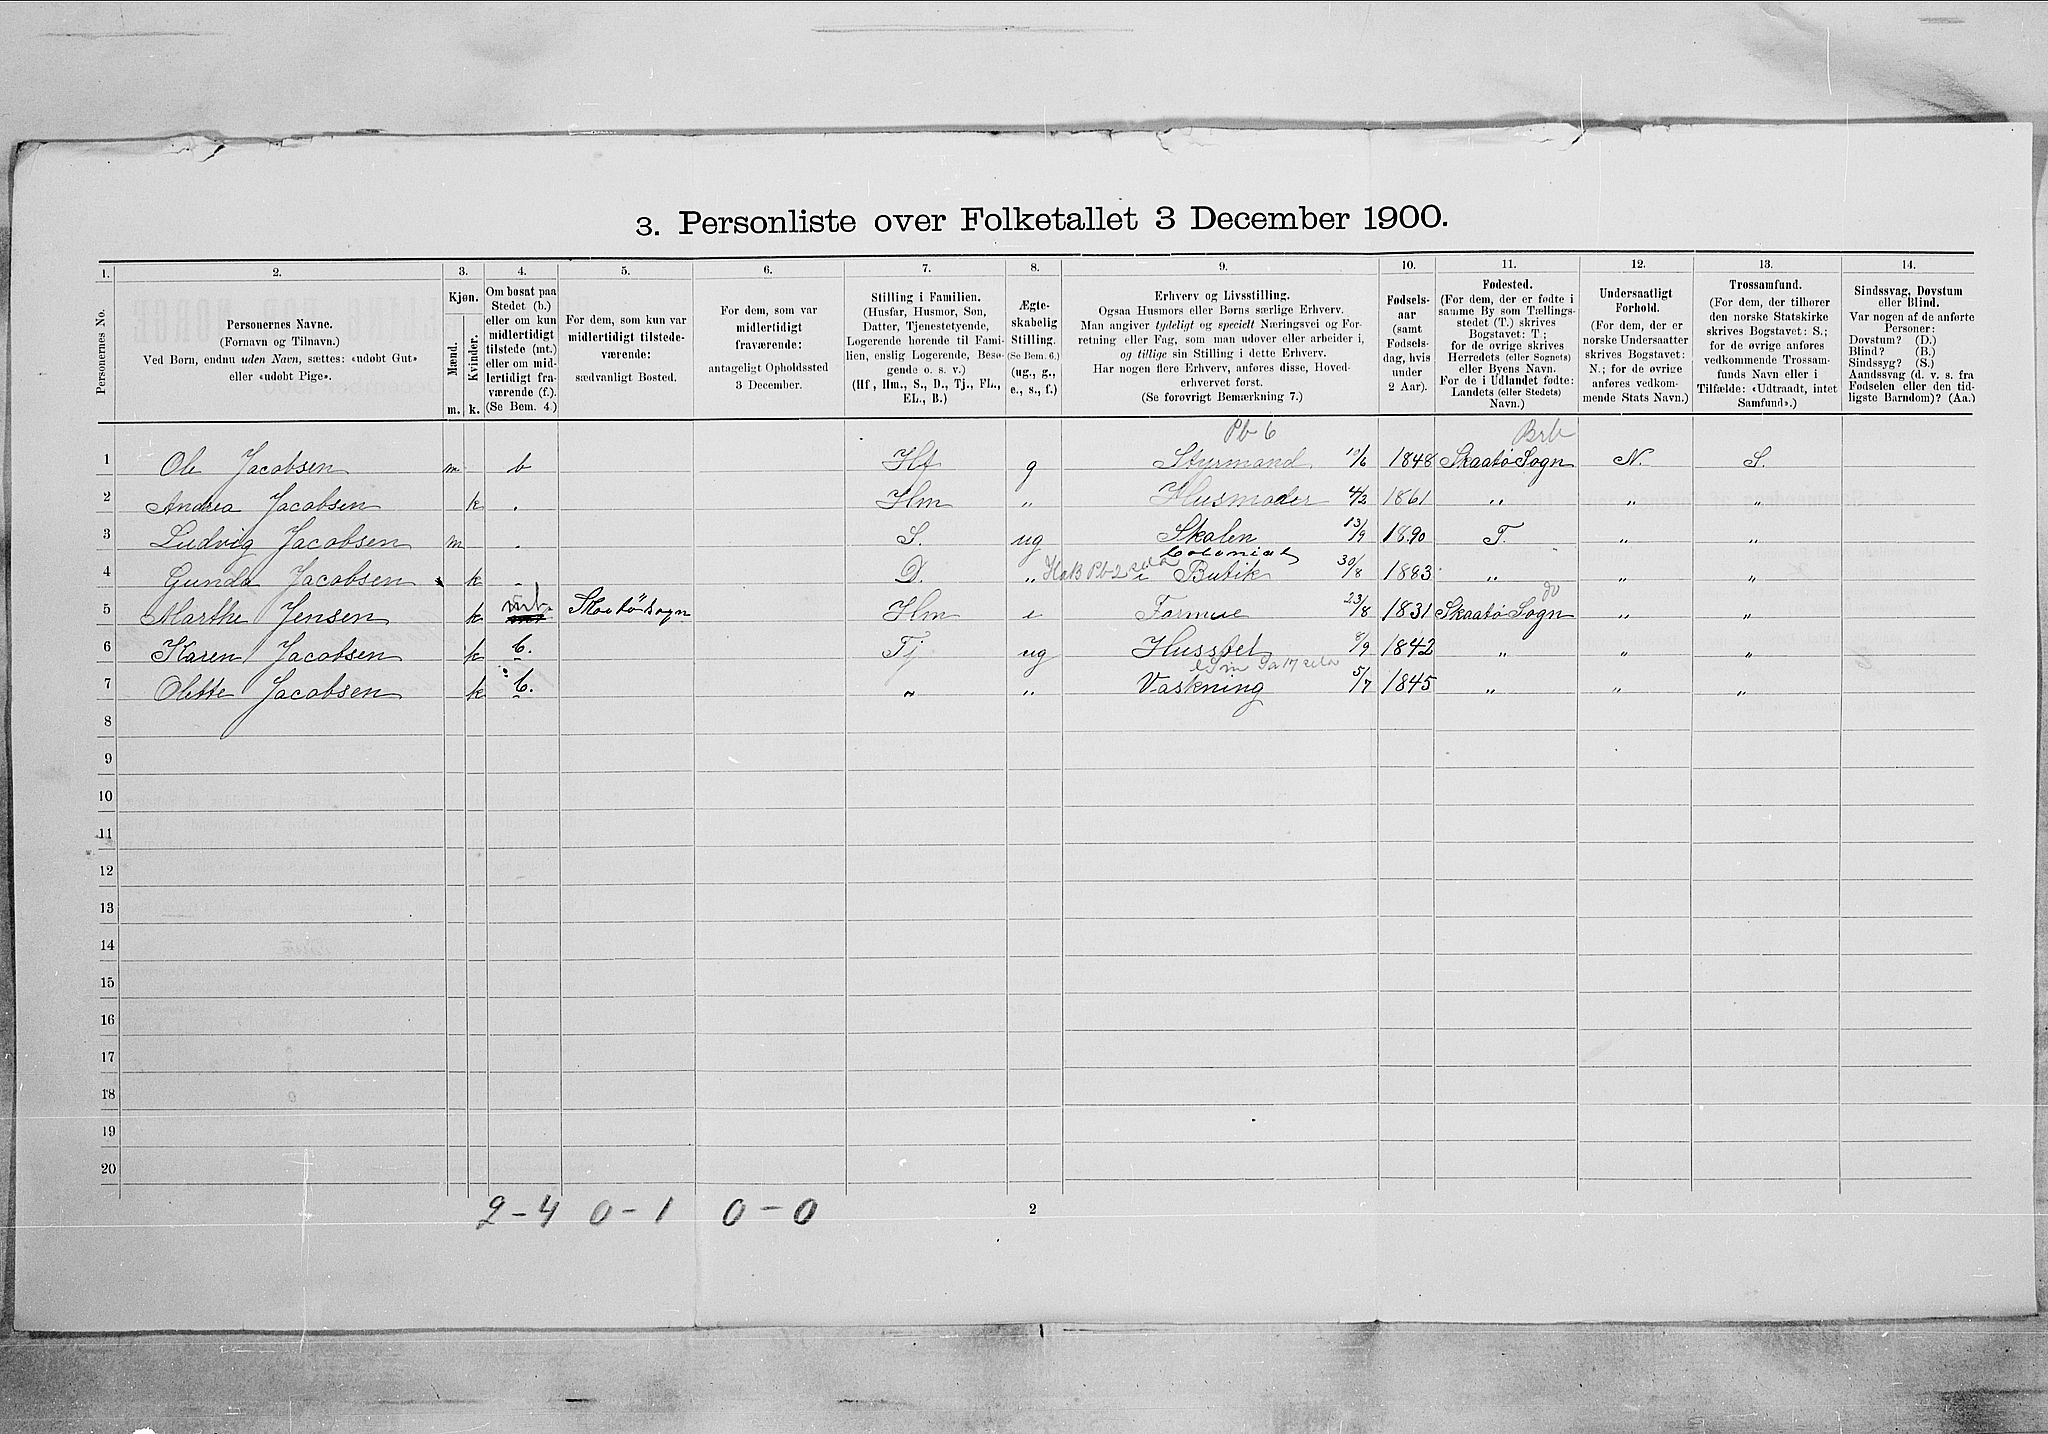 3. Personliste over Folketallet 3 December 1900.
1. 2. 3. 4. 5. 6. 7. 8. 9. 10. 11. 12. 13. 14.
Personernes No.
Personernes Navne.
(Fornavn og Tilnavn.)
Ved Børn, endnu uden Navn, sættes: «udøbt Gut»
eller «udøbt Pige».
Kjøn.
Mænd. Kvinder.
m. k.
Om bosat paa
Stedet (b.)
eller om kun
midlertidigt
tilstede (mt.)
eller om mid-
lertidigt fra-
værende (f.).
(Se Bem. 4.)
For dem, som kun var
midlertidigt tilstede-
værende:
sædvanligt Bosted.
For dem, som var
midlertidigt
fraværende:
antageligt Opholdssted
3 December.
Stilling i Familien.
(Husfar, Husmor, Søn,
Datter, Tjenestetyende,
Logerende hørende til Fami-
lien, enslig Logerende, Besø-
gende o. s. v.)
(Hf., Hm., S., D., Tj., FL.,
EL., B.)
Ægte-
skabelig
Stilling.
(Se Bem. 6.)
(ug., g.,
e., s., f.)
Erhverv og Livsstilling.
Ogsaa Husmors eller Børns særlige Erhverv.
Man angiver tydeligt og specielt Næringsvei og For-
retning eller Fag, som man udover eller arbeider i,
og tillige sin Stilling i dette Erhverv.
Har nogen flere Erhverv, anføres disse, Hoved-
erhvervet først.
(Se forøvrigt Bemærkning 7.)
Fødsels-
aar
(samt
Fødsels-
dag, hvis
under
2 Aar).
Fødested.
(For dem, der er fødte i
samme By som Tællings-
stedet (T.) skrives
Bogstavet: T.;
for de øvrige skrives
Herredets (eller Sognets)
eller Byens Navn.
For de i Udlandet fødte:
Landets (eller Stedets)
Navn.)
Undersaatligt
Forhold.
(For dem, der er
norske Undersaatter
skrives Bogstavet:
N.; for de øvrige
anføres vedkom-
mende Stats Navn.)
Trossamfund.
(For dem, der tilhører
den norske Statskirke
skrives Bogstavet: S.;
for de øvrige anføres
vedkommende Trossam-
funds Navn eller i
Tilfælde: «Udtraadt, intet
Samfund».)
Sindssvag, Døvstum
eller Blind.
Var nogen af de anførte
Personer:
Døvstum? (D.)
Blind? (B.)
Sindssyg? (S.)
Aandssvag (d. v. s. fra
Fødselen eller den tid-
ligste Barndom)? (Aa.)
Pb 6 Brb
1 Ole Jacobsen m b Hf g Styrmand 10/6 1848 Skaatø Sogn N. S.
2 Andrea Jacobsen k . Hm " Husmoder 4/2 1861 " " "
3 Ludvig Jacobsen m . S. ug Skolen 13/9 1890 T. " "
Colonial
4 Gunda Jacobsen k - D. " i Butik 30/8 1883 " " "
5 Marthe Jensen k mt. Skaatø sogn Hm e Formue 23/8 1831 Skaatø Sogn do " "
6 Karen Jacobsen k b. Tj ug Husstel 8/9 1842 " " "
7 Olette Jacobsen k b. " " Vaskning 5/7 1845 " " "
8
9
10
11
12
13
14
15
16
17
18
19
20
2-4 0-1 0-0
2